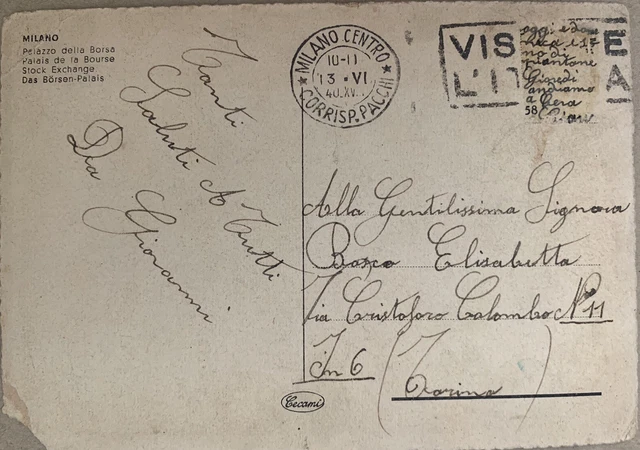 MILANO
Palazzo della Borsa
Palais de la Bourse
Stock Exchange
Das Börsen-Palais
Tanti
Saluti A Tutti
Da Giovanni
MILANO CENTRO
10-11
13 · VI
40.XVI
CORRISP. PACCHI
VIS E
L'IT A
oggi e do
no di
piantone
Giovedi
andiamo
a
58
Ciau
Alla Gentilissima Signora
Bosco Elisabetta
Via Cristoforo Colombo N° 11
In 6 (Torino)
Cecami